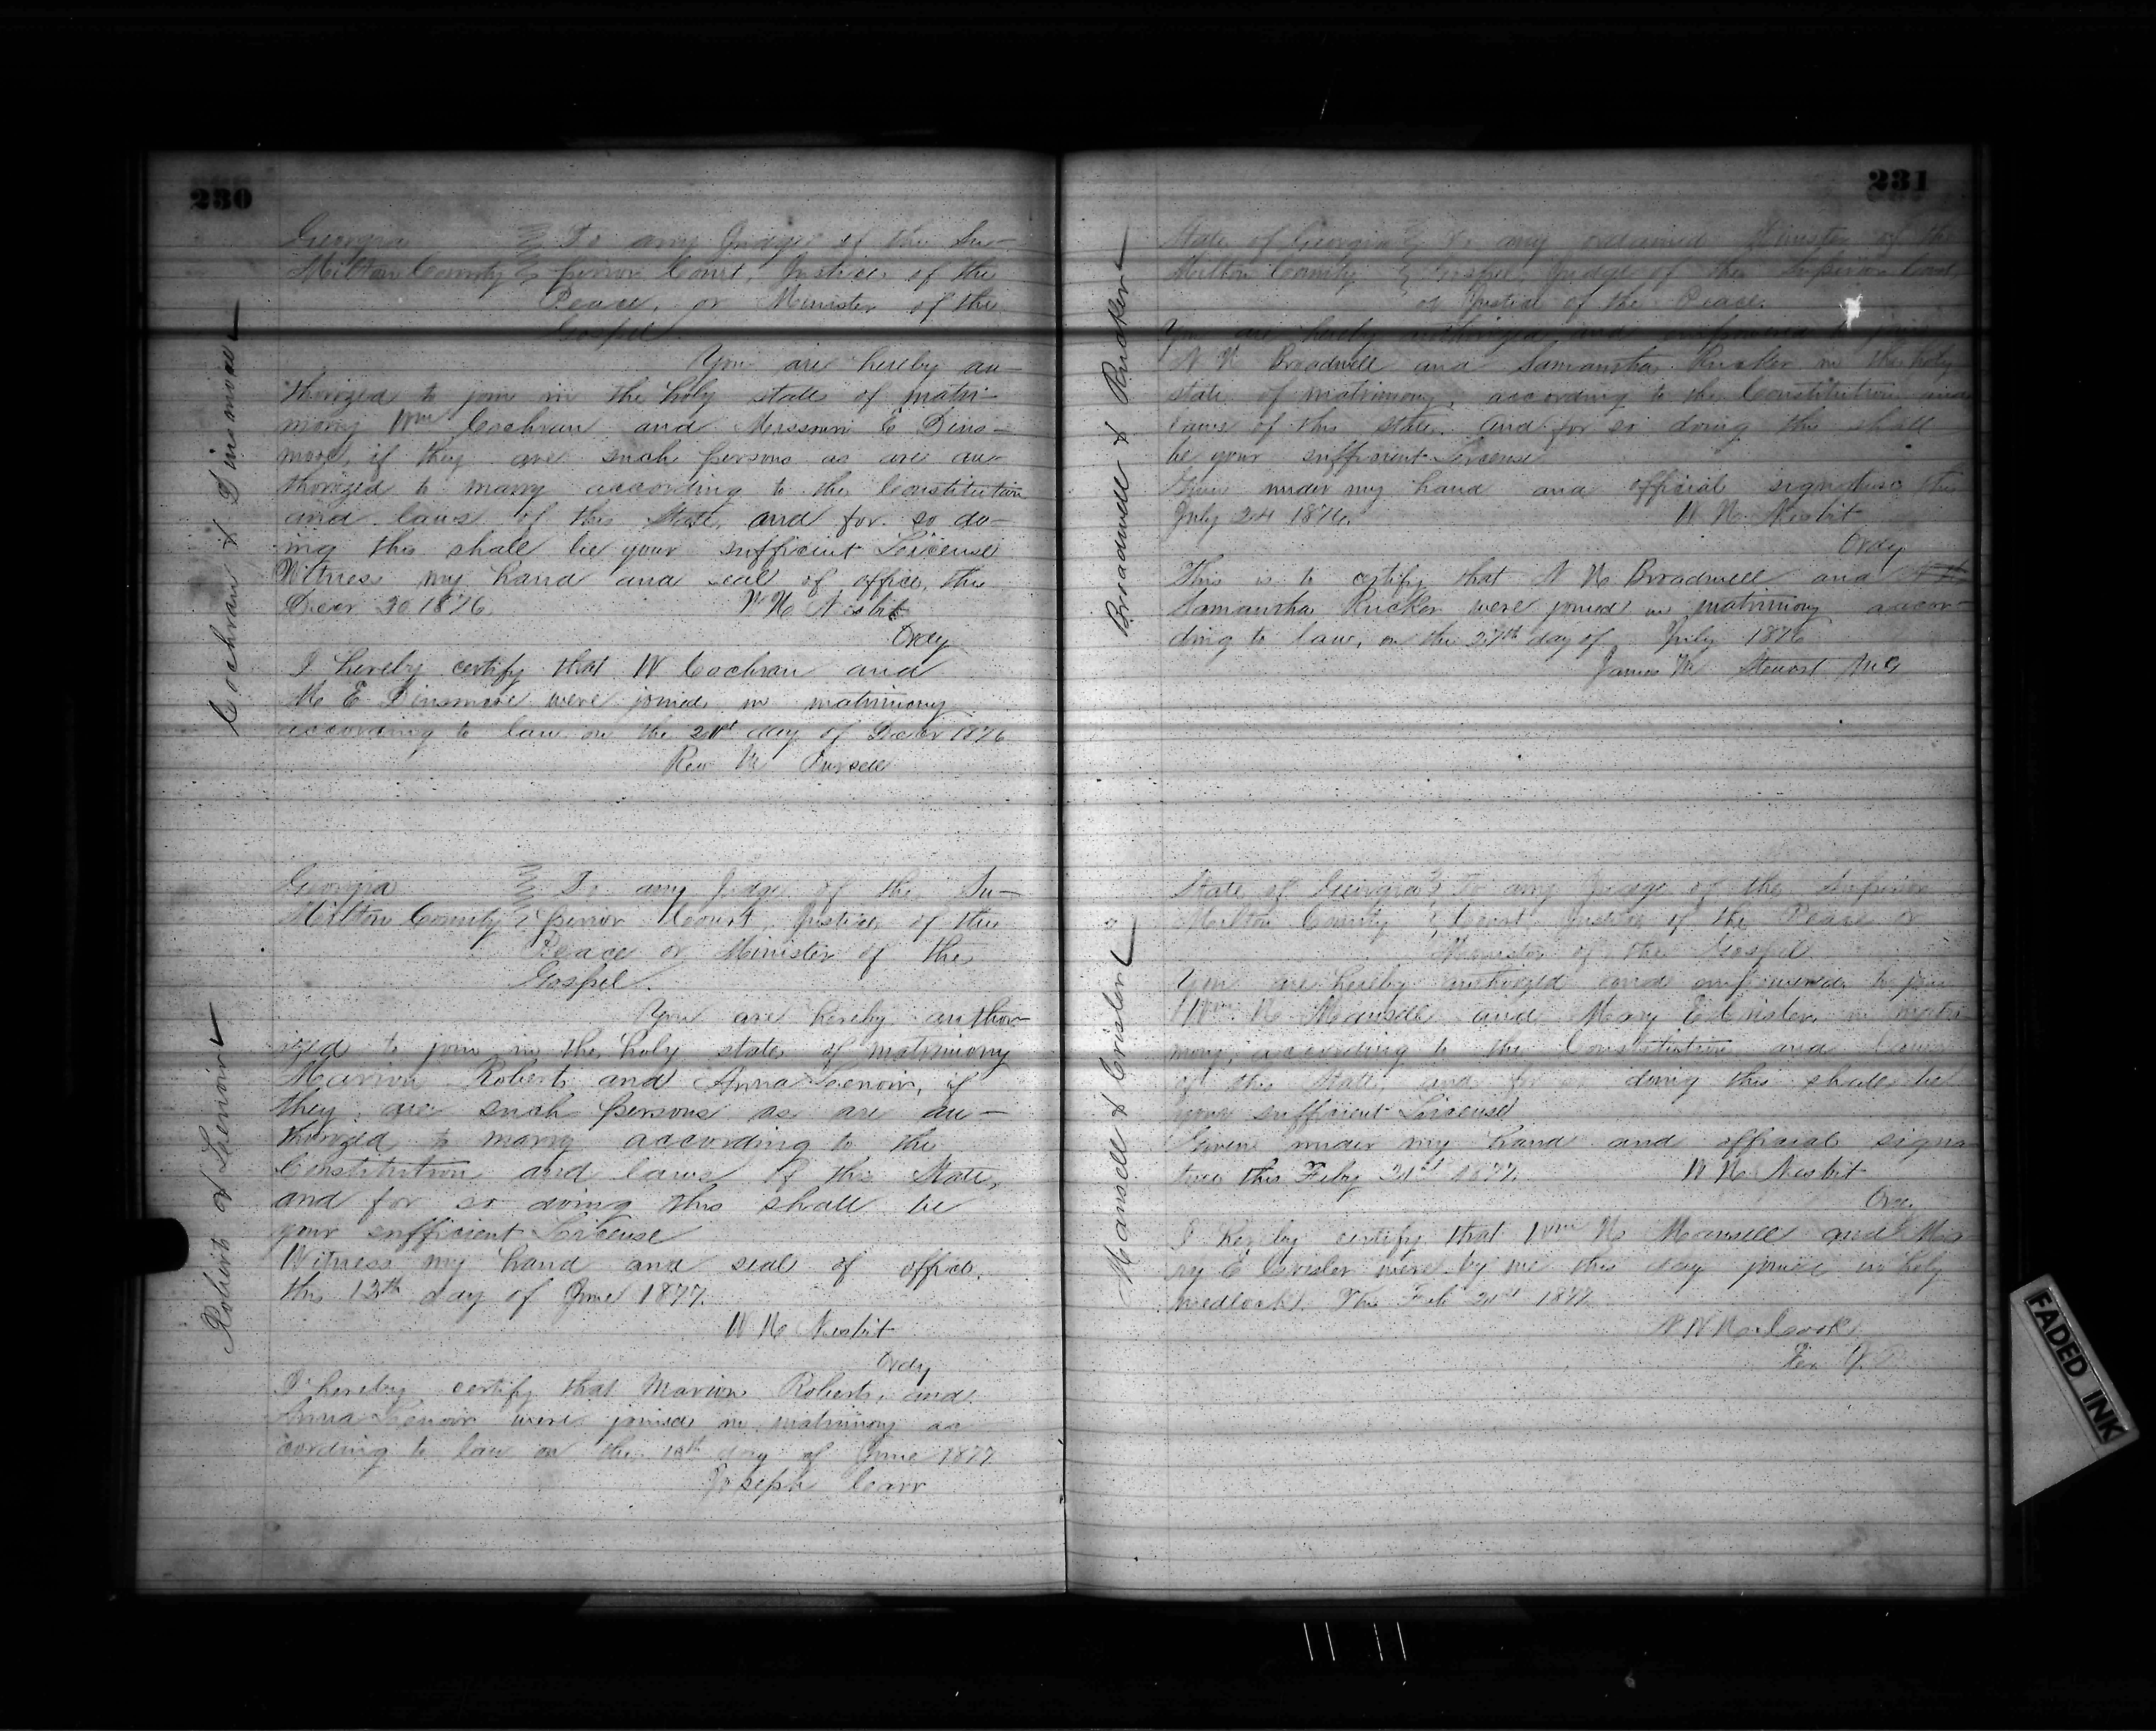 230
Cochran & Dinsmore
Georgia } To any Judge of the Su-
Milton County } perior Court, Justice of the
Peace, or Minister of the
Gospel.
You are hereby au-
thorized to join in the holy state of matri-
mony Wm Cochran and Missouri E Dins-
more, if they are such persons as are au-
thorized to marry according to the Constitution
and laws of this State, and for so do-
ing this shall be your sufficient License
Witness my hand and seal of office, this
Decr 20 1876. W N Nesbit
Ordy
I hereby certify that W Cochran and
M E Dinsmore were joined in matrimony
according to law on the 21st day of Decbr 1876
Rev M Pursell
Roberts & Lenoir
Georgia } To any Judge of the Su-
Milton County } perior Court, Justice of the
Peace or Minister of the
Gospel.
You are hereby author-
ized to join in the holy state of matrimony
Marion Roberts and Anna Lenoir, if
they are such persons as are au-
thorized to marry according to the
Constitution and laws of this State,
and for so doing this shall be
your sufficient License
Witness my hand and seal of office,
this 13th day of June 1877.
W N Nesbit
Ordy
I hereby certify that Marion Roberts and
Anna Lenoir were joined in matrimony ac
cording to law on the day of June 1877
Joseph Carr
231
Broadwell & Rucker
State of Georgia } To any ordained Minister of the
Milton County } Gospel, Judge of the Superior Court
or Justice of the Peace.
You are hereby authorized and empowered to join
N N Broadwell and Samantha Rucker in the holy
state of matrimony, according to the Constitution and
laws of this State. And for so doing this shall
be your sufficient License
Given under my hand and official signature this
July 24 1876. W N Nesbit
Ordy
This is to certify that N N Broadwell and
Samantha Rucker were joined in matrimony accor-
ding to law, on the 27th day of July 1876
James M Stewart M G
Mansell & Crisler
State of Georgia } To any Judge of the Superior
Milton County } Court, Justice of the Peace or
Minister of the Gospel
You are hereby authorized and empowered to join
Wm N Mansell and Mary E Crisler in matri
mony, according to the Constitution and laws
of this State, and for doing this shall be
your sufficient License
Given under my hand and official signa
ture this Feby 21st 1877. W N Nesbit
Ord.
I hereby certify that Wm N Mansell and Ma
ry E Crisler were by me this day joined in holy
wedlock. This Feb 21st 1877
Cook
FADED INK